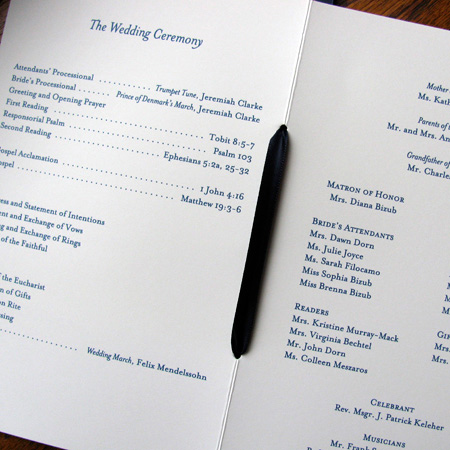 The Wedding Ceremony
Attendants' Processional . . . . . . . . . . Trumpet Tune, Jeremiah Clarke
Bride's Processional . . . . . . . Prince of Denmark's March, Jeremiah Clarke
Greeting and Opening Prayer
First Reading . . . . . . . . . . Tobit 8:5-7
Responsorial Psalm . . . . . . . . . . Psalm 103
Second Reading . . . . . . . . . . Ephesians 5:2a, 25-32
Gospel Acclamation . . . . . . . . . . 1 John 4:16
Gospel . . . . . . . . . . Matthew 19:3-6
ess and Statement of Intentions
ent and Exchange of Vows
ng and Exchange of Rings
of the Faithful
of the Eucharist
on of Gifts
on Rite
ssing
. . . . . . . . . . Wedding March, Felix Mendelssohn
Mother
Ms. Kath
Parents of
Mr. and Mrs. An
Grandfather of
Mr. Charle
Matron of Honor
Mrs. Diana Bizub
Bride's Attendants
Mrs. Dawn Dorn
Ms. Julie Joyce
Ms. Sarah Filocamo
Miss Sophia Bizub
Miss Brenna Bizub
Readers
Mrs. Kristine Murray-Mack
Mrs. Virginia Bechtel
Mr. John Dorn
Ms. Colleen Meszaros
Gif
Celebrant
Rev. Msgr. J. Patrick Keleher
Musicians
Mr. Frank